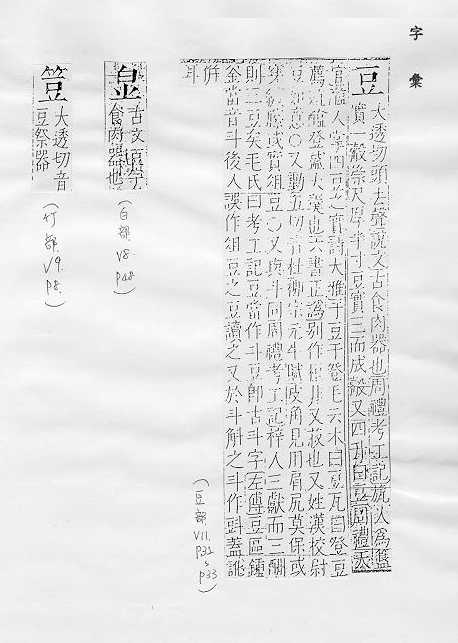 字彙
豆 大透切頭去聲說文古食肉器也周禮考工記瓬人爲簋
實一觳崇尺厚半寸豆實三而成觳又四升曰豆周禮天
官醢人掌四豆之實詩大雅于豆于登毛云木曰豆瓦曰登豆
薦菹醢登盛大羹也六書正譌別作 又菽也又姓漢校尉
豆 〇又動五切音杜柳宗元牛賦皮角見用肩尻莫保或
穿緘縢或實俎豆〇又與斗同周禮考工記梓人三獻而三酬
則一豆矣毛氏曰考工記豆當作斗豆卽古斗字左傳豆區鍾
釜當音斗後人誤作俎豆之豆讀之又於斗斛之斗作㪷蓋訛
耳
(豆部 V11. P32 & P33)
皀 古文 食肉器也
(白部 V8 P48)
䇺 大透切音
豆祭器
(竹部 V9. P8.)